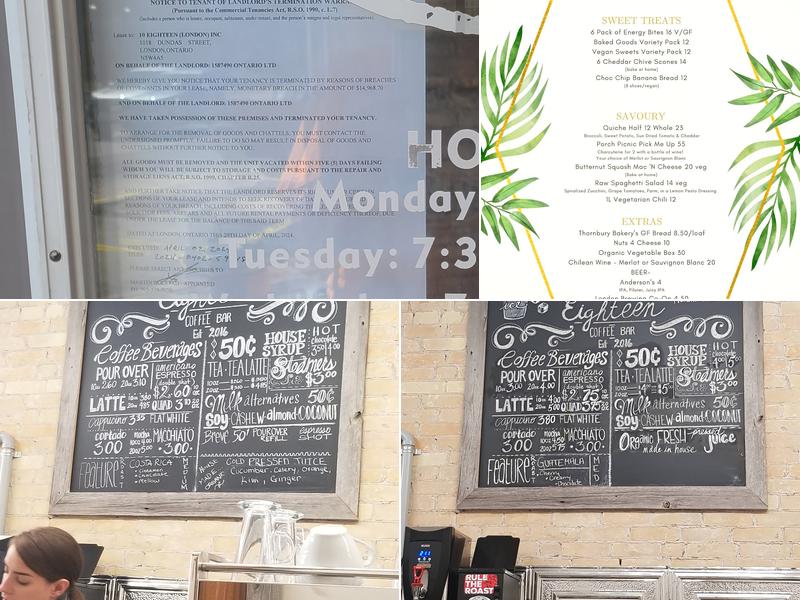 NOTICE TO TENANT OF LANDLORD'S TERMINATION WARR
(Pursuant to the Commercial Tenancies Act, R.S.O. 1990, c. L.7)
(includes a person who is lessee, occupant, subtenant, under-tenant, and the person's assigns and legal representatives)
Lease to: 10 EIGHTEEN (LONDON) INC
1118 DUNDAS STREET,
LONDON, ONTARIO
N5W4A5
ON BEHALF OF THE LANDLORD: 1587490 ONTARIO LTD
WE HEREBY GIVE YOU NOTICE THAT YOUR TENANCY IS TERMINATED BY REASONS OF BREACHES
OF COVENANTS IN YOUR LEASE, NAMELY, MONETARY BREACH IN THE AMOUNT OF $14,968.70
AND ON BEHALF OF THE LANDLORD: 1587490 ONTARIO LTD
WE HAVE TAKEN POSSESSION OF THESE PREMISES AND TERMINATED YOUR TENANCY.
TO ARRANGE FOR THE REMOVAL OF GOODS AND CHATTELS, YOU MUST CONTACT THE
UNDERSIGNED PROMPTLY. FAILURE TO DO SO MAY RESULT IN DISPOSAL OF GOODS AND
CHATTELS WITHOUT FURTHER NOTICE TO YOU.
ALL GOODS MUST BE REMOVED AND THE UNIT VACATED WITHIN FIVE (5) DAYS FAILING
WHICH YOU WILL BE SUBJECT TO STORAGE AND COSTS PURSUANT TO THE REPAIR AND
STORAGE LIENS ACT, R.S.O. 1990, CHAPTER R.25.
AND FURTHER TAKE NOTICE THAT THE LANDLORD RESERVES ITS
DATED AT LONDON, ONTARIO THIS DAY OF APRIL, 2024.
HO
Monday
Tuesday: 7:3
SWEET TREATS
6 Pack of Energy Bites 16 V/GF
Baked Goods Variety Pack 12
Vegan Sweets Variety Pack 12
6 Cheddar Chive Scones 14
(bake at home)
Choc Chip Banana Bread 12
(8 slices/vegan)
SAVOURY
Quiche Half 12 Whole 23
Broccoli, Sweet Potato, Sun Dried Tomato & Cheddar
Porch Picnic Pick Me Up 55
Charcuterie for 2 with a bottle of wine!
Your choice of Merlot or Sauvignon Blanc
Butternut Squash Mac 'N Cheese 20 veg
(Bake at home)
Raw Spaghetti Salad 14 veg
Spiralized Zucchini, Grape Tomatoes, Parm, in a Lemon Pesto Dressing
1L Vegetarian Chili 12
EXTRAS
Thornbury Bakery's GF Bread 8.50/loaf
Nuts 4 Cheese 10
Organic Vegetable Box 30
Chilean Wine - Merlot or Sauvignon Blanc 20
BEER-
Anderson's 4
IPA, Pilsner, Juicy IPA
London Brewing Co-Op 4.50
Eighteen
COFFEE BAR
Est 2016
Coffee Beverages
POUR OVER
10oz 2.60 20oz 3.10
americano
ESPRESSO
(double shot)
$2.60
LATTE 10oz 3.80
20oz 4.85 QUAD 3.10
CAPPUCCINO 3.35 FLAT WHITE
cortado
3.00
mocha
MACCHIATO
3.00
50¢ HOUSE SYRUP
HOT
chocolate
3.50 4.00
TEA · TEA LATTE
Steamers
$3.00
Milk alternatives 50¢
SOY CASHEW almond COCONUT
Breve 50¢ POUROVER REFILL espresso SHOT
Feature
ROAST
COSTA RICA
Cinnamon
Chocolate
Mellow
MEDIUM
HOUSE MADE ORGANIC
COLD PRESSED JUICE
Cucumber, Celery, Orange,
Kim, Ginger
Eighteen
COFFEE BAR
Est 2016
Coffee Beverages
POUR OVER
10oz 3.00 20oz 4.00
americano
ESPRESSO
(double shot)
$2.75
LATTE QUAD 3.75
CAPPUCCINO 3.80 FLAT WHITE
cortado
3.00
mocha
MACCHIATO
3.00
50¢ HOUSE SYRUP
HOT
chocolate
TEA · TEA LATTE
Steamers
$3.00
Milk alternatives 50¢
SOY CASHEW almond COCONUT
Organic FRESH-pressed juice
made in house
Feature
ROAST
GUATEMALA
Cherry
Creamy
Chocolate
MED
211
RULE THE ROAST